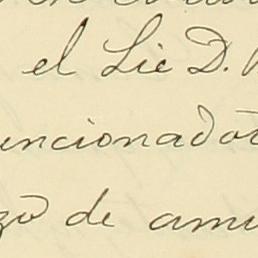 el Lic D.
encionado
zo de ami